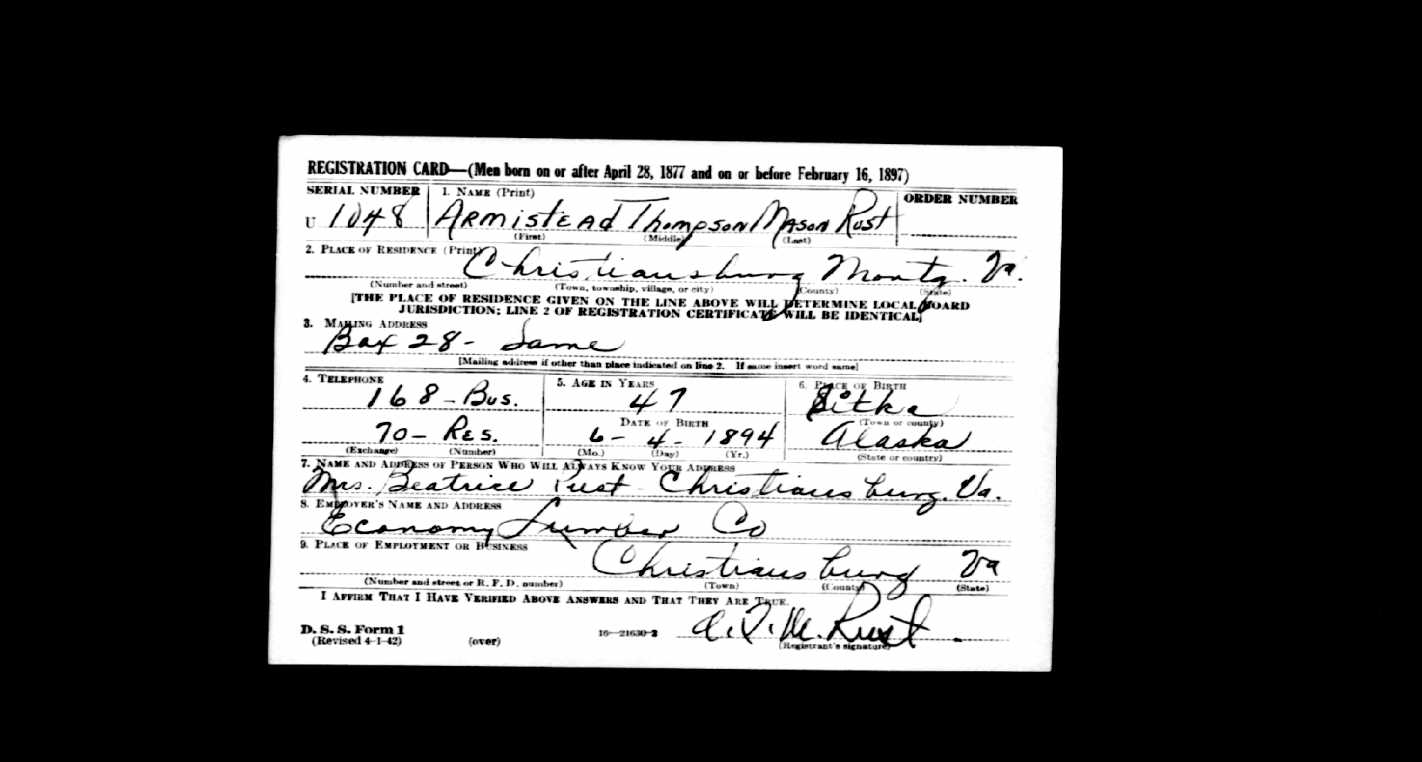 REGISTRATION CARD—(Men born on or after April 28, 1877 and on or before February 16, 1897)
SERIAL NUMBER 1. NAME (Print) ORDER NUMBER
U 1048 ARMISTEAD Thompson MASON RUST
(First) (Middle) (Last)
2. PLACE OF RESIDENCE (Print)
Christiansburg Montg. Va.
(Number and street) (Town, township, village, or city) (County) (State)
[THE PLACE OF RESIDENCE GIVEN ON THE LINE ABOVE WILL DETERMINE LOCAL BOARD
JURISDICTION; LINE 2 OF REGISTRATION CERTIFICATE WILL BE IDENTICAL]
3. MAILING ADDRESS
Box 28 - Same
[Mailing address if other than place indicated on line 2. If same insert word same]
4. TELEPHONE 5. AGE IN YEARS 6. PLACE OF BIRTH
168 - Bus. 47 Sitka
DATE OF BIRTH (Town or county)
70 - RES. 6 - 4 - 1894 Alaska
(Exchange) (Number) (Mo.) (Day) (Yr.) (State or country)
7. NAME AND ADDRESS OF PERSON WHO WILL ALWAYS KNOW YOUR ADDRESS
Mrs. Beatrice Rust Christiansburg, Va.
8. EMPLOYER'S NAME AND ADDRESS
Economy Lumber Co
9. PLACE OF EMPLOYMENT OR BUSINESS
Christiansburg Va
(Number and street or R. F. D. number) (Town) (County) (State)
I AFFIRM THAT I HAVE VERIFIED ABOVE ANSWERS AND THAT THEY ARE TRUE.
D. S. S. Form 1
(Revised 4-1-42) (over) 16—21630-2 A. T. M. Rust.
(Registrant's signature)